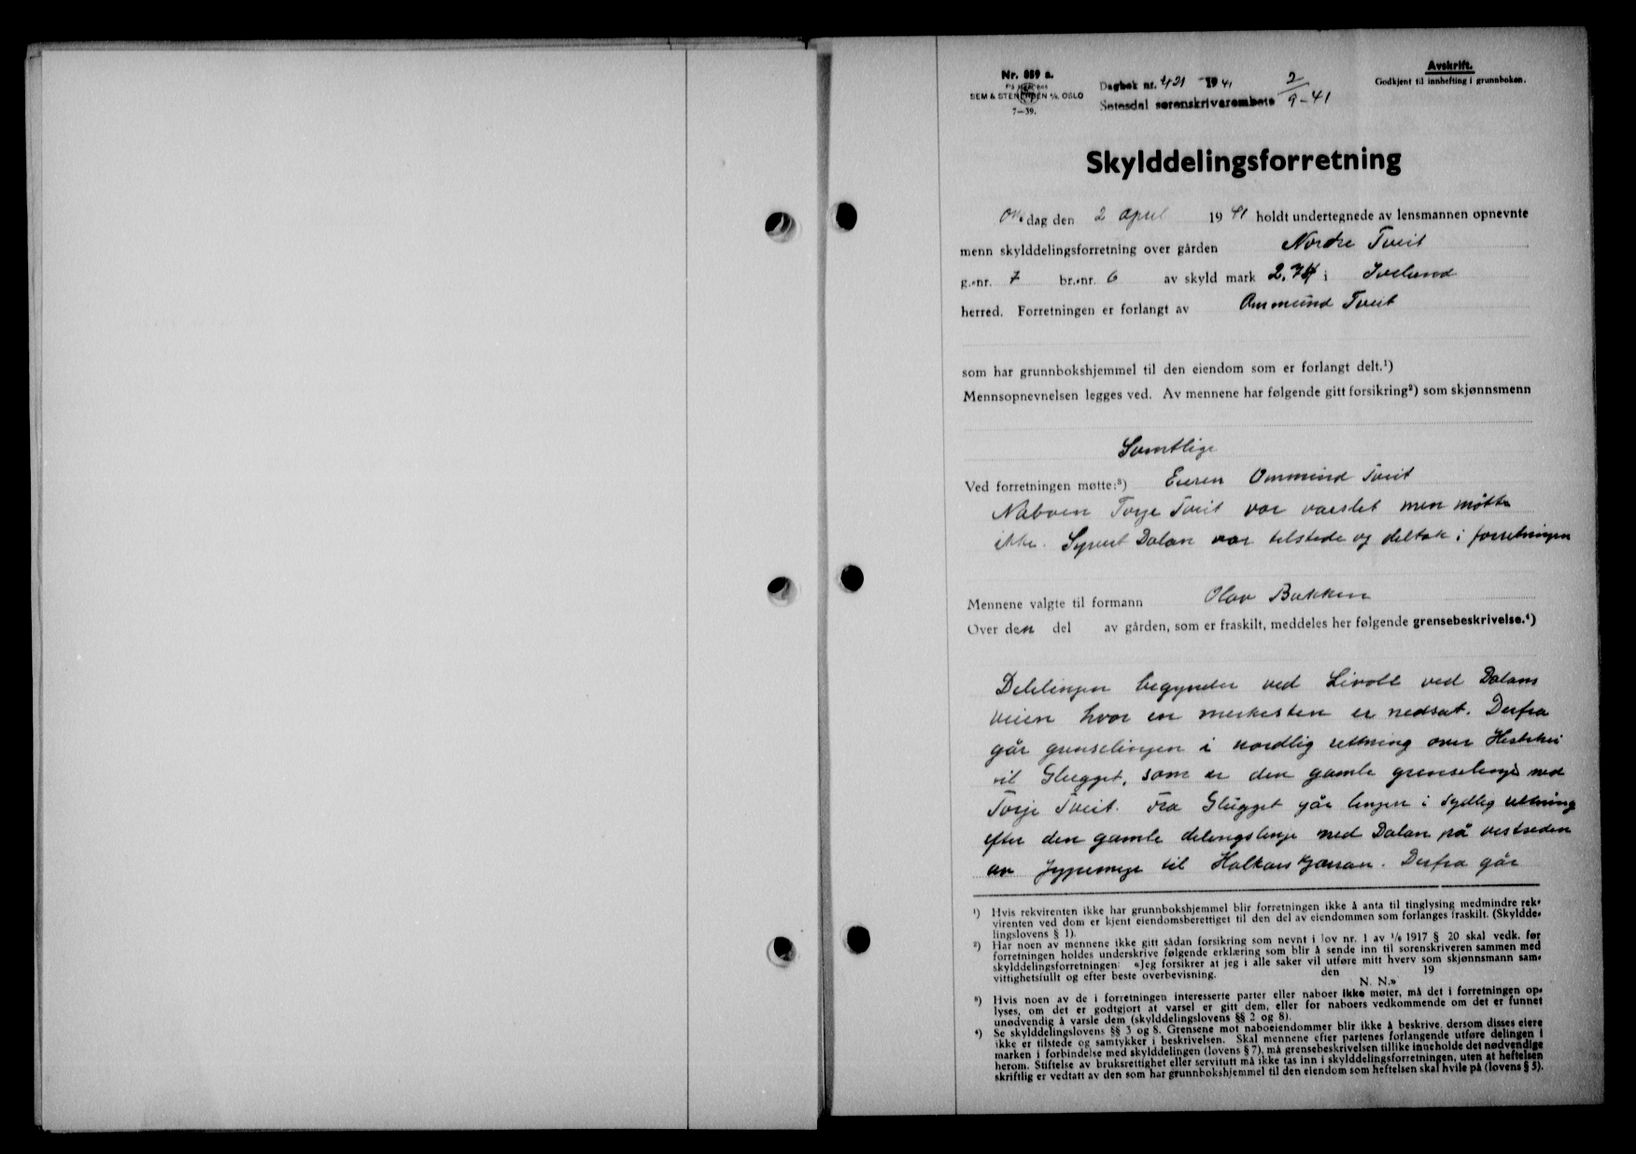 Avskrift.
Godkjent til innhefting i grunnboken.
Nr. 859 a.
SEM & STENERSEN A/S, OSLO
7—39.
Dagbok nr. 421 1941
Setesdal sorenskrivarembete 2/9-41
Skylddelingsforretning
On.dag den 2 april 1941 holdt undertegnede av lensmannen opnevnte
menn skylddelingsforretning over gården Nordre Tveit
g.-nr. 7 br.-nr. 6 av skyld mark 2,74 i Iveland
herred. Forretningen er forlangt av Ommund Tveit
som har grunnbokshjemmel til den eiendom som er forlangt delt.¹)
Mennsopnevnelsen legges ved. Av mennene har følgende gitt forsikring²) som skjønnsmenn
Samtlige
Ved forretningen møtte:³) Eieren Ommund Tveit
Naboen Torje Tveit var varslet men møtte
ikke. Syvert Dalan var tilstede og deltok i forretningen
Mennene valgte til formann Olav Bakken
Over den del av gården, som er fraskilt, meddeles her følgende grensebeskrivelse.⁴)
Delelinjen begynder ved ved Dalans
veien hvor en merkesten er nedsat. Derfra
går grenselinjen i nordlig rettning over
til Glugget, som er den gamle grenselinje med
Torje Tveit. Fra Glugget går linjen i sydlig rettning
efter den gamle delingslinje med Dalan på vestsiden
av til. Derfra går
¹) Hvis rekvirenten ikke har grunnbokshjemmel blir forretningen ikke å anta til tinglysing medmindre rek-
virenten ved dom er kjent eiendomsberettiget til den del av eiendommen som forlanges fraskilt. (Skyldde-
lingslovens § 1).
²) Har noen av mennene ikke gitt sådan forsikring som nevnt i lov nr. 1 av 1/6 1917 § 20 skal vedk. før
forretningen holdes underskrive følgende erklæring som blir å sende inn til sorenskriveren sammen med
skylddelingsforretningen: «Jeg forsikrer at jeg i alle saker vil utføre mitt hverv som skjønnsmann sam-
vittighetsfullt og efter beste overbevisning. den 19
N. N.»
³) Hvis noen av de i forretningen interesserte parter eller naboer ikke møter, må det i forretningen op-
lyses, om det er godtgjort at varsel er gitt dem, eller for naboers vedkommende om det er funnet
unødvendig å varsle dem (skylddelingslovens §§ 2 og 8).
⁴) Se skylddelingslovens §§ 3 og 8. Grensene mot naboeiendommer blir ikke å beskrive, dersom disses eiere
ikke er tilstede og samtykker i beskrivelsen. Skal mennene efter partenes forlangende utføre delingen i
marken i forbindelse med skylddelingen (lovens § 7), må grensebeskrivelsen tillike inneholde det nødvendige
herom. Stiftelse av bruksrettighet eller servitutt må ikke tas inn i skylddelingsforretningen, uten at heftelsen
skriftlig er vedtatt av den som har grunnbokshjemmel til den eiendom som heftelsen skal hvile på (lovens § 5).